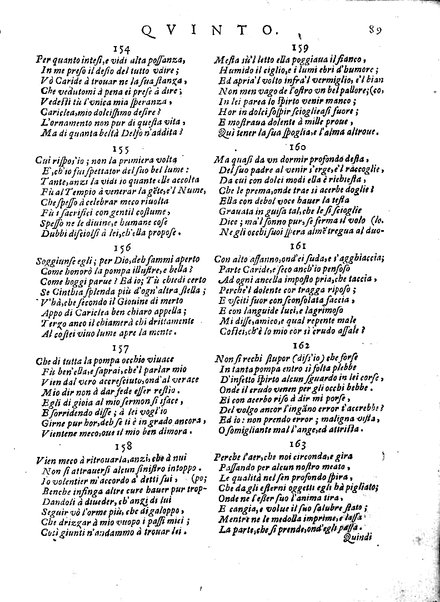 QVINTO. 89
154
Per quanto intesi, e vidi alta possanza,
In me preso il desio del tutto vdire;
Vò Caride à trouar ne la sua stanza,
Che vedutomi à pena ei prese à dire;
Vedesti tù l'vnica mia speranza,
Cariclea, mio dolcissimo desire?
L'ornamento non pur di questa vita,
Ma di quanta beltà Delfo n'addita?
155
Cui rispos'io; non la primiera volta
E', ch'io fui spettator del suo bel lume:
Tante, anzi la vidi io quante elle accolta
Fù al Tempio à venerar la gẽte, e'l Nume,
Che spesso à celebrar meco riuolta
Fù i sacrifici con gentil costume,
Spesso ne le diuine, e humane cose
Dubbi disciolsi à lei, ch'ella propose.
156
Soggiunse egli; per Dio, deh fammi aperto
Come honorò la pompa illustre, e bella?
Come hoggi parue? Ed io; Tù chiedi certo
Se Cinthia splenda più d'ogn'altra stella;
V'hà, che secondo il Giouine di merto
Appo di Cariclea ben chiaro appella;
Tergo anco il chiamerà chi drittamente
Al costei viuo lume apre la mente.
157
Che di tutta la pompa occhio viuace
Fù ben'ella, e saprai, che'l parlar mio
Vien dal vero accresciuto, ond'al verace
Mio dir non à dar fede esser restio.
Egli di gioia al mio sermon si sface,
E sorridendo disse; à lei vogl'io
Girne pur hor, deh se ti è in grado ancora,
Vientene meco, oue il mio ben dimora.
158
Vien meco à ritrouarla, anzi, che à nui
Non si attrauersi alcun sinistro intoppo.
Io volentier m'accordo à detti sui, (po;
Benche infinga altre cure hauer pur trop-
Dandoli à diueder, ch'anzi di lui
Seguir vò l'orme più, che di galoppo,
Che drizzar à mio vuopo i passi miei;
Così giunti n'andammo à trouar lei.
159
Mesta sù'l letto ella poggiaua il fianco,
Humido il ciglio, e i lumi ebri d'humore;
Ed apria'l volto infra'l vermiglio, e'l bian
Non men vago de l'ostro vn bel pallore; (co,
In lei parea lo spirto venir manco;
Hor in dolci sospir scioglieasi fuore;
E mostraua dolente à mille proue,
Qui tener la sua spoglia, e l'alma altroue.
160
Ma quasi da vn dormir profondo desta,
Del suo padre al venir s'erge, e'l raccoglie,
Da cui con dolci modi ella è richiesta,
Che le prema, onde trae sì acerbe doglie?
Ella con debol voce hauer la testa
Grauata in guisa tal, che le si scioglie
Dice; ma'l sonno pur, se ferma il volo (lo.
Ne gli occhi suoi spera almẽ tregua al duo-
161
Con alto affanno, ond'ei suda, e s'agghiaccia;
Parte Caride, e seco anch'io pensoso
Ad ogni ancella impostò pria, che taccia,
Perche'l dolente cor tragga riposo;
E vsciti fuor con sconsolata faccia,
E con languide luci, e lagrimoso
Mi disse, amico, e qual repente male
Costei, ch'è lo mio cor sì crudo assale?
162
Non fi rechi stupor (diss'io) che forse
In tanta pompa entro sì folta plebbe
D'infetto spirto alcun sguardo in lei corse,
Onde il crudo venen per gli occhi bebbe.
Ei con acerbo riso à dir mi porse,
Del volgo ancor l'ingãno error t'accrebbe?
Ed io: non prende error; maligna vista,
O somigliante mal l'ange, ed attrista.
163
Perche l'aer, che noi circonda, e gira
Passando per alcun nostro meato,
Le qualità nel sen profondo spira,
Che da gli esterni oggetti egli hà pigliato;
Onde ne l'esser suo l'anima tira,
E cangia, e volue il suo salubre stato;
Mentre ne le medolla imprime, e lassa
La parte, che si prende, ond'egli passa.
Quindi